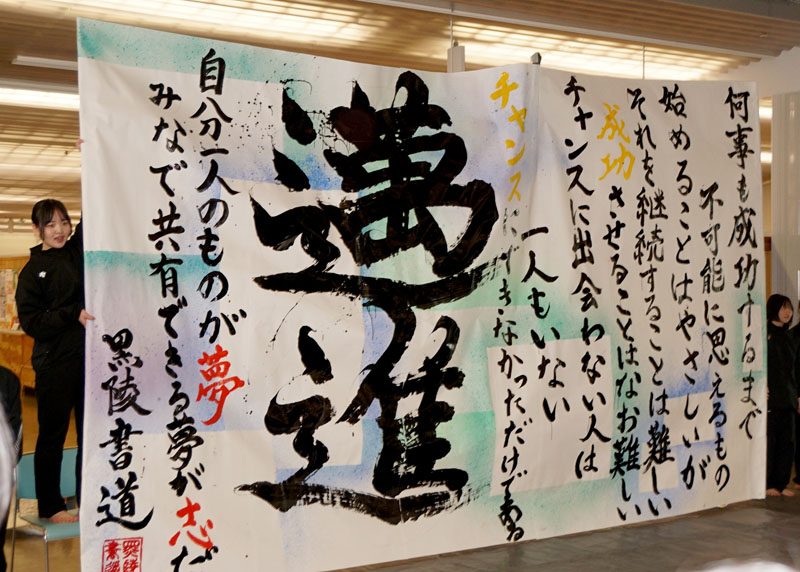 何事も成功するまで
不可能に思えるもの
始めることはやさしいが
それを継続することは難しい
成功させることはなお難しい
チャンスに出会わない人は
一人もいない
チャンスにできなかっただけである
邁進
自分一人のものが夢
みなで共有できる夢が志だ
黒陵書道